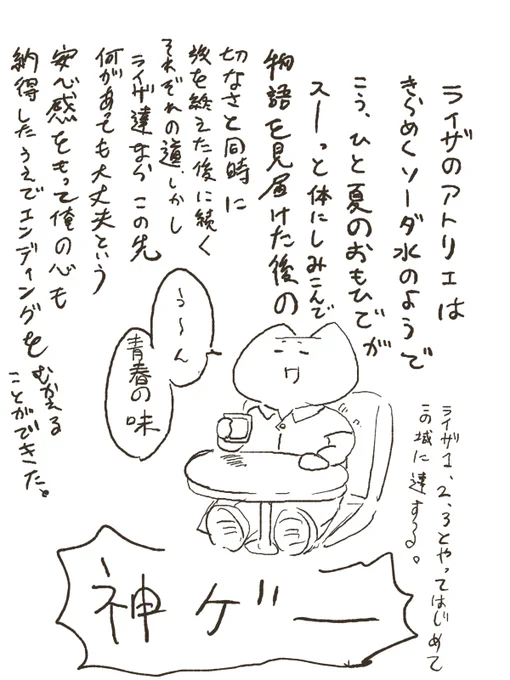 ライザのアトリエは
きらめくソーダ水のようで
こう、ひと夏のおもひでが
スーっと体にしみこんで
物語を見届けた後の
切なさと同時に
後を終えた後に続く
それぞれの道、しかし
ライザ達なら この先
何があっても大丈夫という
安心感をもって俺の心も
納得したうえでエンディングを
むかえる
ことができた。
う〜ん
青春の味
ライザ1、2、3とやってはじめて
この域に達する。
神ゲー